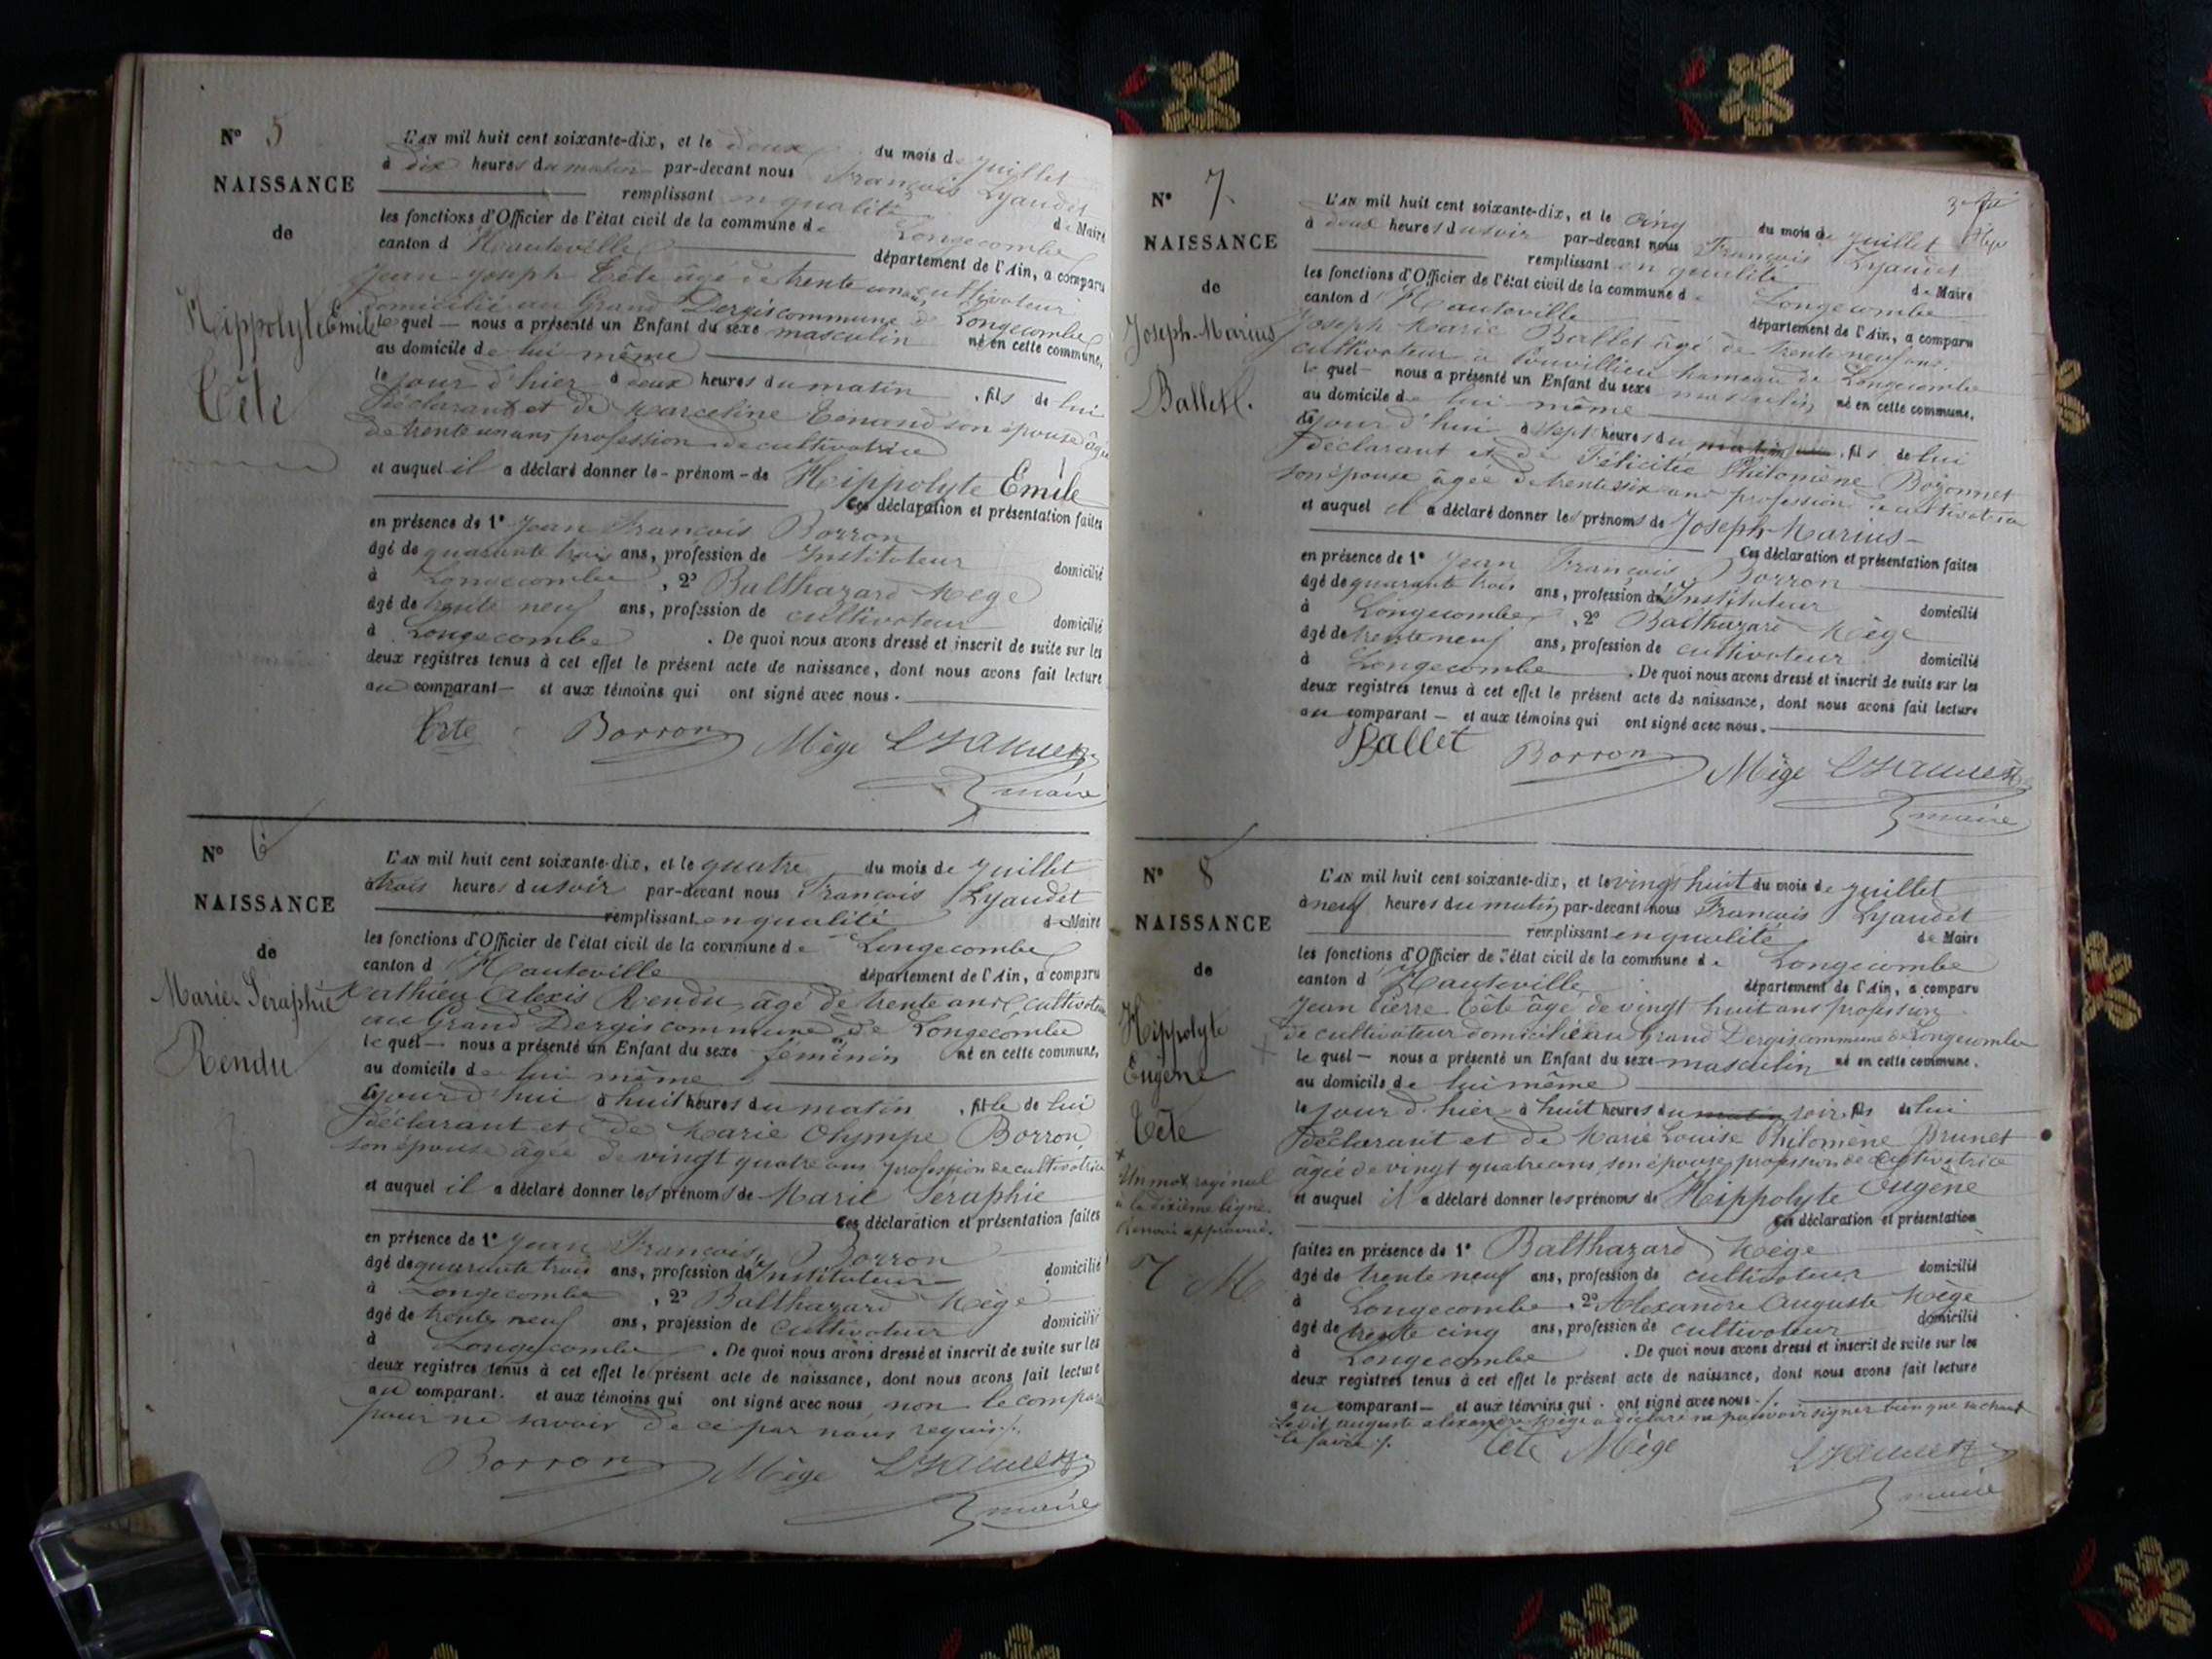 N° 5
NAISSANCE
de
Hippolyte Emile
Tête
L'AN mil huit cent soixante-dix, et le deux du mois de Juillet
à dix heures du matin par-devant nous François Lyaudet
remplissant en qualité de Maire
les fonctions d'Officier de l'état civil de la commune de Longecombe
canton d'Hauteville département de l'Ain, a comparu
Jean-Joseph Tête âgé de trente un ans, cultivateur
domicilié au Grand Dergis commune de Longecombe
lequel — nous a présenté un Enfant du sexe masculin né en cette commune,
au domicile de lui même
le jour d'hier à deux heures du matin, fils de lui
déclarant et de Marceline Tenand son épouse âgée
de trente un ans profession de cultivatrice
et auquel il a déclaré donner le - prénom - de Hippolyte Emile
Ces déclaration et présentation faites
en présence de 1° Jean François Borron
âgé de quarante trois ans, profession de Instituteur domicilié
à Longecombe, 2° Balthazard Mège
âgé de trente neuf ans, profession de cultivateur domicilié
à Longecombe. De quoi nous avons dressé et inscrit de suite sur les
deux registres tenus à cet effet le présent acte de naissance, dont nous avons fait lecture
au comparant — et aux témoins qui ont signé avec nous.
Tête Borron Mège Lyaudet
maire
N° 6
NAISSANCE
de
Marie Séraphie
Rendu
L'AN mil huit cent soixante-dix, et le quatre du mois de Juillet
à trois heures du soir par-devant nous François Lyaudet
remplissant en qualité de Maire
les fonctions d'Officier de l'état civil de la commune de Longecombe
canton d'Hauteville département de l'Ain, a comparu
Mathieu Alexis Rendu âgé de trente ans cultivateur
au Grand Dergis commune de Longecombe
lequel — nous a présenté un Enfant du sexe féminin né en cette commune,
au domicile de lui même
ce jour d'hui à huit heures du matin, fille de lui
déclarant et de Marie Olympe Borron
son épouse âgée de vingt quatre ans profession de cultivatrice
et auquel il a déclaré donner les prénoms de Marie Séraphie
Ces déclaration et présentation faites
en présence de 1° Jean François Borron
âgé de quarante trois ans, profession de Instituteur domicilié
à Longecombe, 2° Balthazard Mège
âgé de trente neuf ans, profession de cultivateur domicilié
à Longecombe. De quoi nous avons dressé et inscrit de suite sur les
deux registres tenus à cet effet le présent acte de naissance, dont nous avons fait lecture
au comparant. et aux témoins qui ont signé avec nous non le compa
pour ne savoir de ce par nous requis
Borron Mège Lyaudet
maire
N° 7
NAISSANCE
de
Joseph-Marius
Ballet
L'AN mil huit cent soixante-dix, et le cinq du mois de Juillet
à deux heures du soir par-devant nous François Lyaudet
remplissant en qualité de Maire
les fonctions d'Officier de l'état civil de la commune de Longecombe
canton d'Hauteville département de l'Ain, a comparu
Joseph Marie Ballet âgé de trente neuf ans,
cultivateur à hameau de Longecombe
lequel — nous a présenté un Enfant du sexe masculin né en cette commune,
au domicile de lui même
ce jour d'hui à sept heures du matin, fils de lui
déclarant et de Félicitée Philomène Bozonnet
son épouse âgée de trente six ans profession de cultivatrice
et auquel il a déclaré donner les prénoms de Joseph-Marius-
Ces déclaration et présentation faites
en présence de 1° Jean François Borron
âgé de quarante trois ans, profession de Instituteur domicilié
à Longecombe, 2° Balthazard Mège
âgé de trente neuf ans, profession de cultivateur domicilié
à Longecombe. De quoi nous avons dressé et inscrit de suite sur les
deux registres tenus à cet effet le présent acte de naissance, dont nous avons fait lecture
au comparant — et aux témoins qui ont signé avec nous.
Ballet Borron Mège Lyaudet
maire
N° 8
NAISSANCE
de
Hippolyte
Eugène
Tête
Un mot rayé nul
à la dixième ligne.
Renvoi approuvé.
T M
L'AN mil huit cent soixante-dix, et le vingt huit du mois de Juillet
à neuf heures du matin par-devant nous François Lyaudet
remplissant en qualité de Maire
les fonctions d'Officier de l'état civil de la commune de Longecombe
canton d'Hauteville département de l'Ain, a comparu
Jean Pierre Tête âgé de vingt huit ans profession
de cultivateur domicilié au Grand Dergis commune de Longecombe
lequel — nous a présenté un Enfant du sexe masculin né en cette commune.
au domicile de lui même
le jour d'hier à huit heures du matin soir fils de lui
déclarant et de Marie Louise Philomène Brunet
âgée de vingt quatre ans, son épouse, profession de cultivatrice
et auquel il a déclaré donner les prénoms de Hippolyte Eugène
Ces déclaration et présentation
faites en présence de 1° Balthazard Mège
âgé de trente neuf ans, profession de cultivateur domicilié
à Longecombe, 2° Alexandre Auguste Mège
âgé de trente cinq ans, profession de cultivateur domicilié
à Longecombe. De quoi nous avons dressé et inscrit de suite sur les
deux registres tenus à cet effet le présent acte de naissance, dont nous avons fait lecture
au comparant — et aux témoins qui ont signé avec nous.
Ledit Auguste Alexandre Mège a déclaré ne pouvoir signer bien que sachant
le faire
Tête Mège Lyaudet
maire